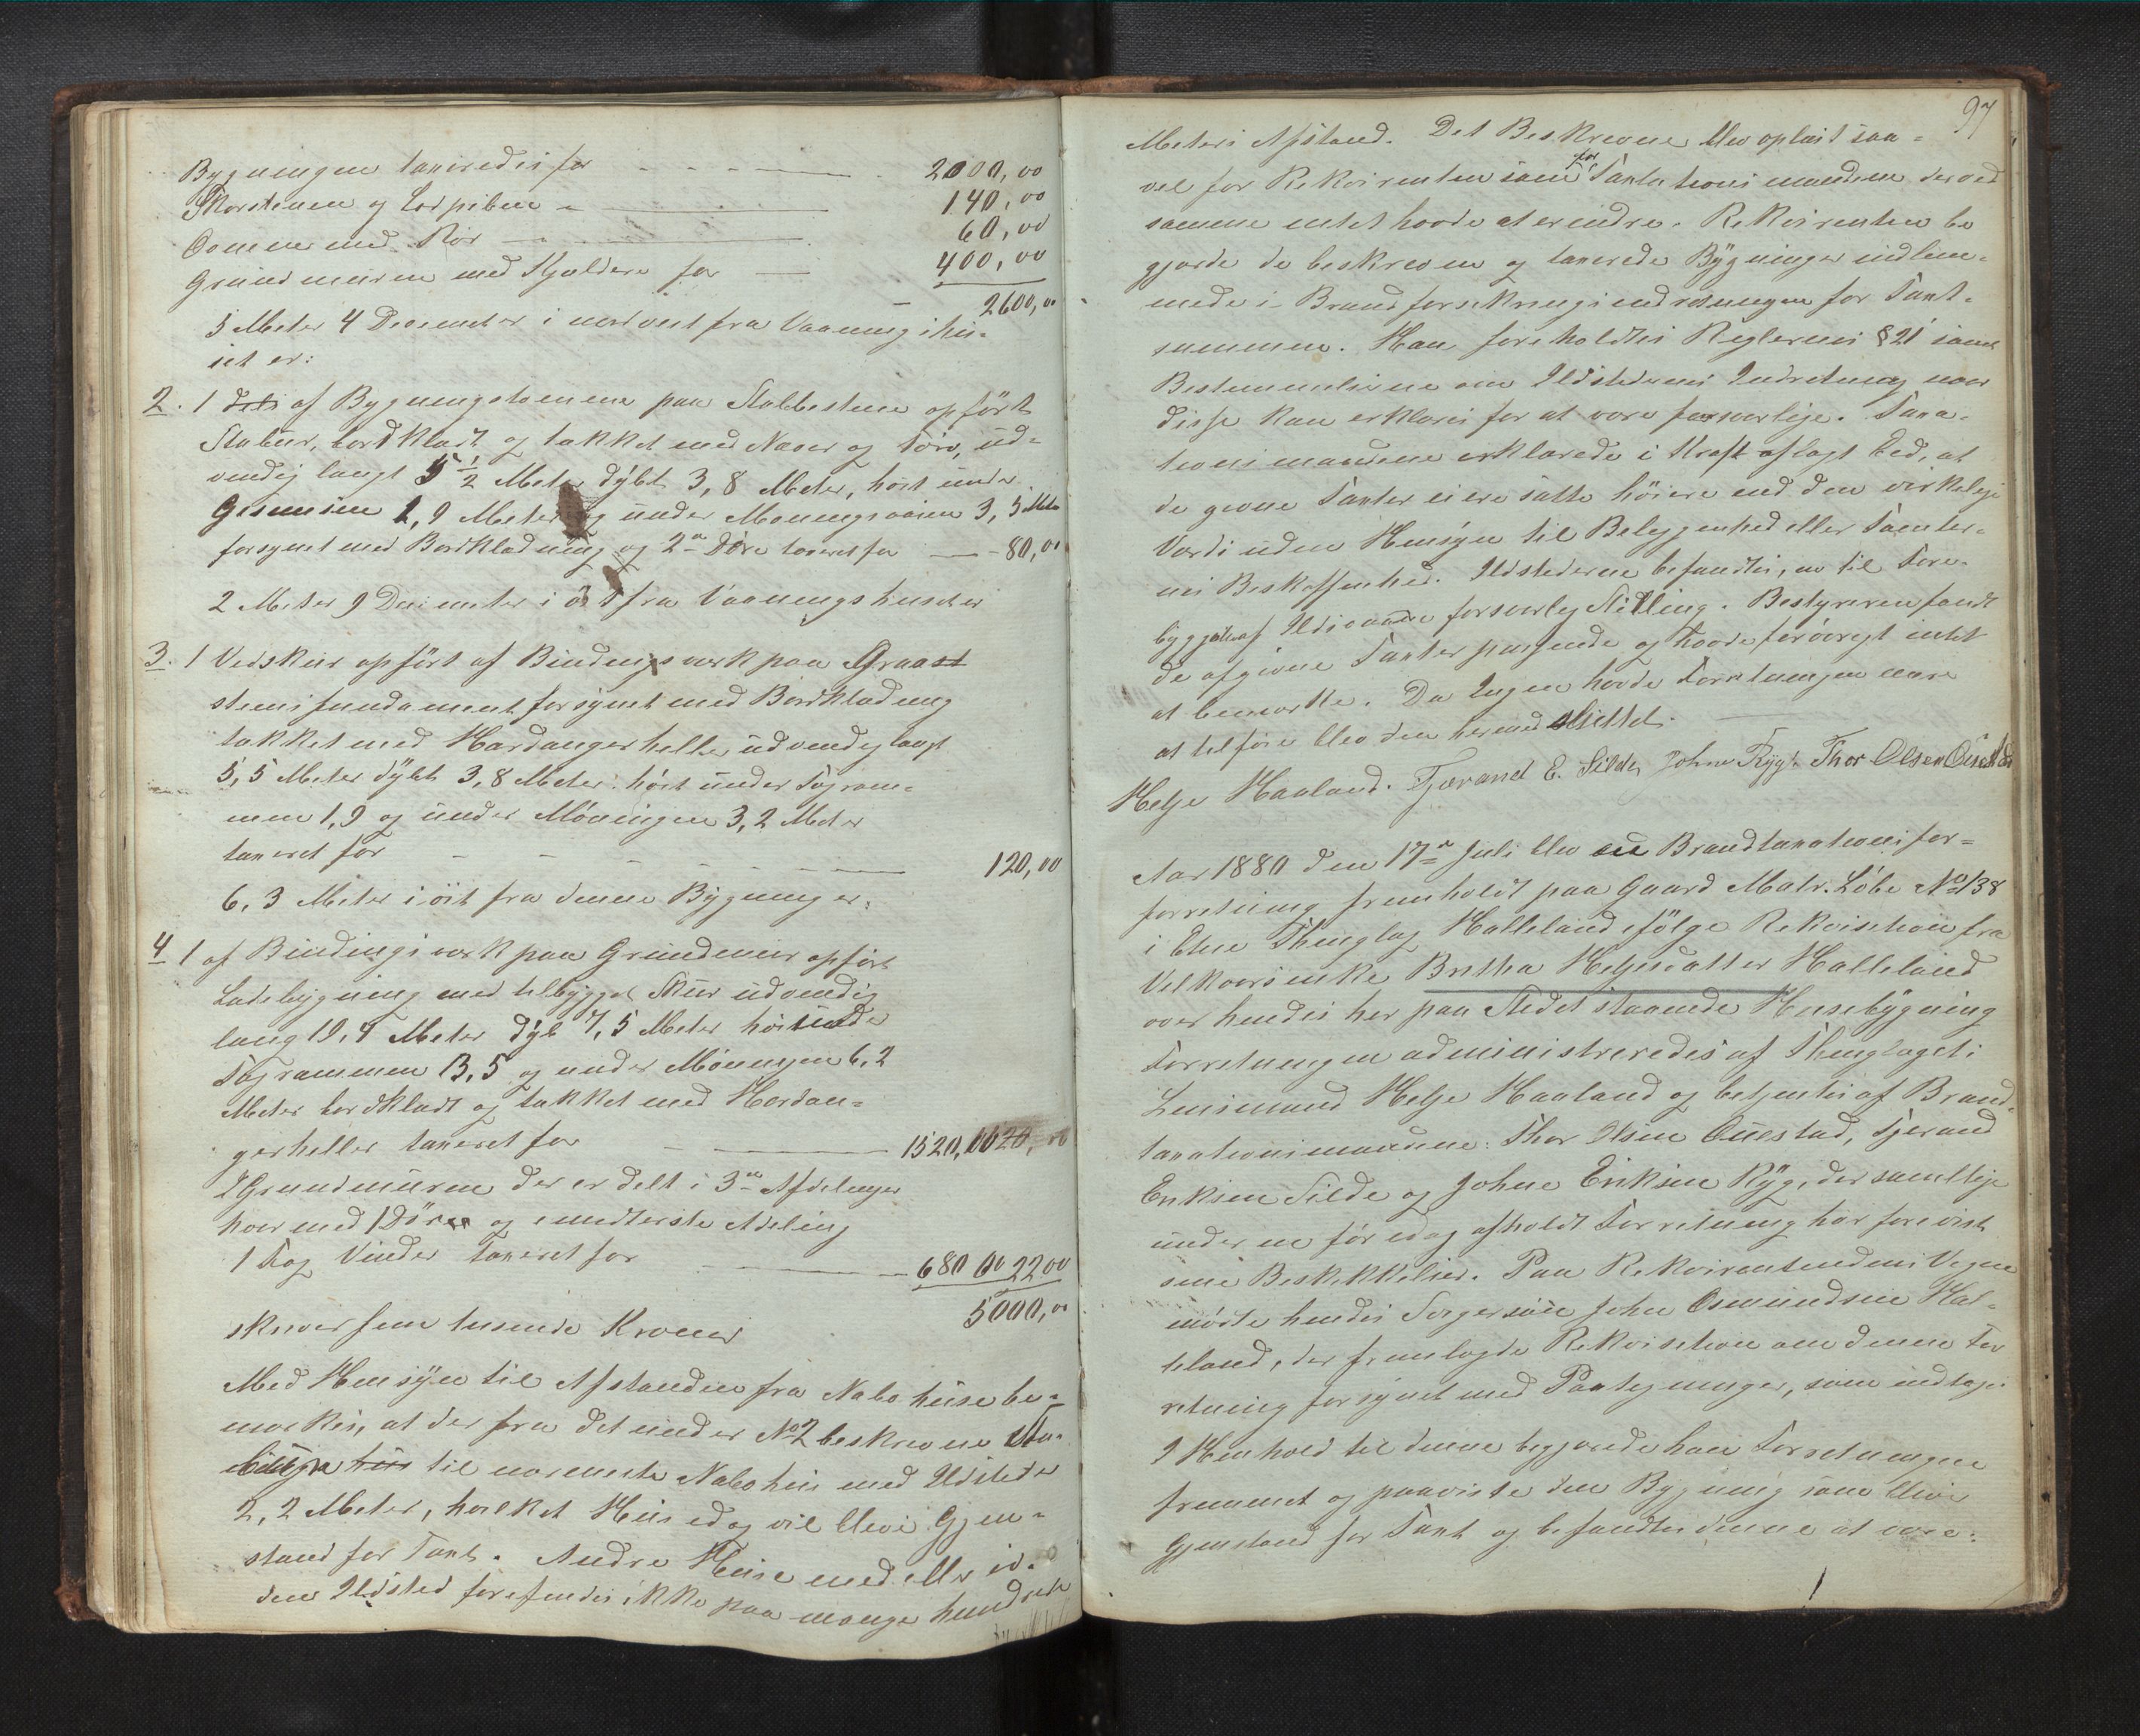 Bygningen taxeredes for - - - - 2000,00
Skorstenen og Ledpiben - 140,00
Ovnene med Rør - 60,00
Grundmuren med Kjeldere for - 400,00
2600,00
5 Meter 4 Decimeter i nordvest fra Vaaningshu-
set er:
2. 1 dels af Bygningstømmer paa Stabbestene opført
Stabur, bordklædt og tækket med Næver og Torv, ud-
vendig langt 5 1/2 Meter dybt 3,8 Meter, høit under
Gesimsen 1,9 Meter og under Møningsaasen 3,5 Meter
forsynet med Bordklædning og 2de Døre taxeret for - 80,00
2 Meter 9 Decimeter i øst fra Vaaningshuset er
3. 1 Vedskur opført af Bindingsværk paa Graast
stensfundament forsynet med Bordklædning
tækket med Hardangerheller udvendig langt
5,5 Meter dybt 3,8 Meter høit under Tagram-
men 1,9 og under Møningen 3,2 Meter
taxeret for - - - - - 120,00
6,3 Meter i øst fra denne Bygning er:
4 1 af Bindingsværk paa Grundmur opført
Ladebygning med tilbygget Skur udvendig
lang 19,4 Meter dyb 7,5 Meter høi under
Tagrammen 3,5 og under Møningen 6,2
Meter bordklædt og tækket med Hardan-
gerheller taxeret for - 1520,00
I Grundmuren der er delt i 3de Afdelinger
hver med 1 Dør og i midterste Afdeling
1 Fag Vinduer taxeret for - 680 00 2200
5000,00
skriver fem tusende Kroner
Med Hensyn til Afstanden fra Nabohuse be-
mærkes, at der fra det under No 2 beskrevne Sta-
bur er til nærmeste Nabohus med Ildsted er
2,2 Meter, hvilket Huus idag vil blive Gjen-
stand for Taxt. Andre Huse med eller u-
den Ildsted forefindes ikke paa mange hundrede
97
Meters Afstand. Det Beskrevne blev oplæst saa-
vel for Rekvirenten som for Taxtationsmændene der ved
samme intet havde at erindre. Rekvirenten be
gjærde de beskrevne og taxerede Bygninger indlem-
mede i Brandforsikringsindretningen for Taxt-
summen. Han foreholdtes Reglernes § 21 samt
Bestemmelserne om Ildstedernes Indretning naar
disse kan erklæres for at være forsvarlige. Taxa-
tionsmændene erklærede i Kraft aflagt Eed, at
de givne Taxter ei ere satte høiere end den virkelige
Værdi uden Hensyn til Beliggenhed eller Tomter-
nes Beskaffenhed. Ildstederne befandtes, nu til Fore-
byggelse af Ildsvaade forsvarlig Stilling. Bestyreren fandt
de afgivne Taxter passende og havde forøvrigt intet
at bemærke. Da Ingen havde Forretningen mere
at tilføre blev den hermed sluttet.
Helje Haaland. Tjærand E. Silde, Johne Ryg. Thor Olsen Ouestad
Aar 1880 den 17de Juli blev en Brandtaxationsfor-
forretning fremholdt paa Gaard Matr. Løbe No 138
i Etne Thinglag Halleland ifølge Rekvisition fra
Velkaarsenke Britha Heljesdatter Halleland
over hendes her paa Stedet staaende Husebygning
Forretningen administreredes af Thinglagets
Lensmand Helje Haaland og betjentes af Brand-
taxationsmændene: Thor Olsen Ouestad, Tjerand
Eriksen Silde og Johne Eriksen Ryg, der samtlige
under en før idag afholdt Forretning har forevist
sine Beskikkelser. Paa Rekvirentindens Vegne
mødte hendes Svigersøn John Osmundsen Hal-
leland, der fremlagde Rekvisition om denne For
retning forsynet med Paategninger, som indtages
I Henhold til denne begjærede han Forretningen
fremmet og paaviste den Bygning som blive
Gjenstand for Taxt og befandtes denne at være:
1